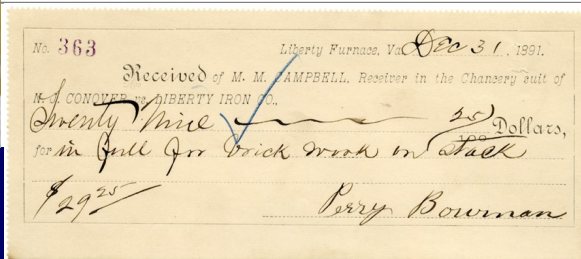 No. 363 Liberty Furnace, Va. Dec 31, 1891.
Received of M. M. CAMPBELL, Receiver in the Chancery suit of
CONOVER vs. LIBERTY IRON CO.,
Twenty Nine 25/100 Dollars,
for in full for brick work on Stack
$29 25
Perry Bowman